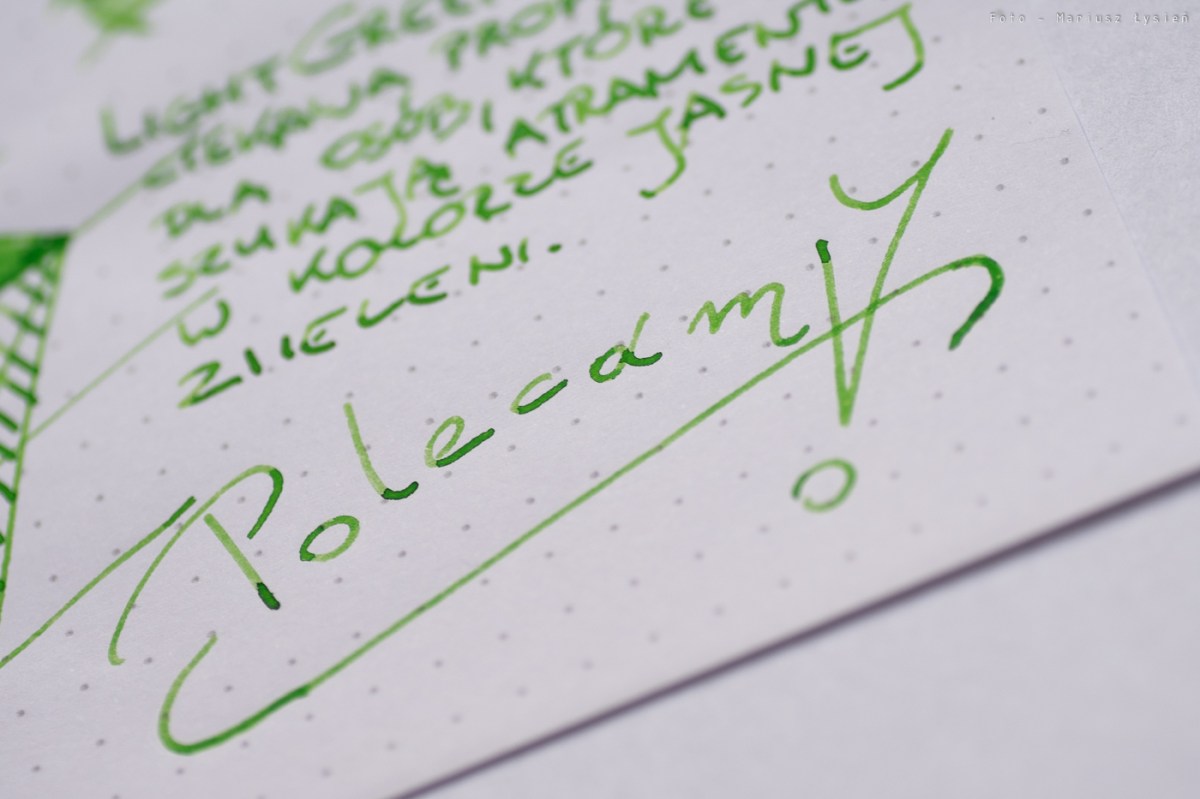 Foto - Mariusz Łysień
LIGHT GREE
CIEKAWA PROP
DLA OSÓB, KTÓRE
SZUKAJĄ ATRAMENT
W KOLORZE JASNEJ
ZIELENI.
Polecam!